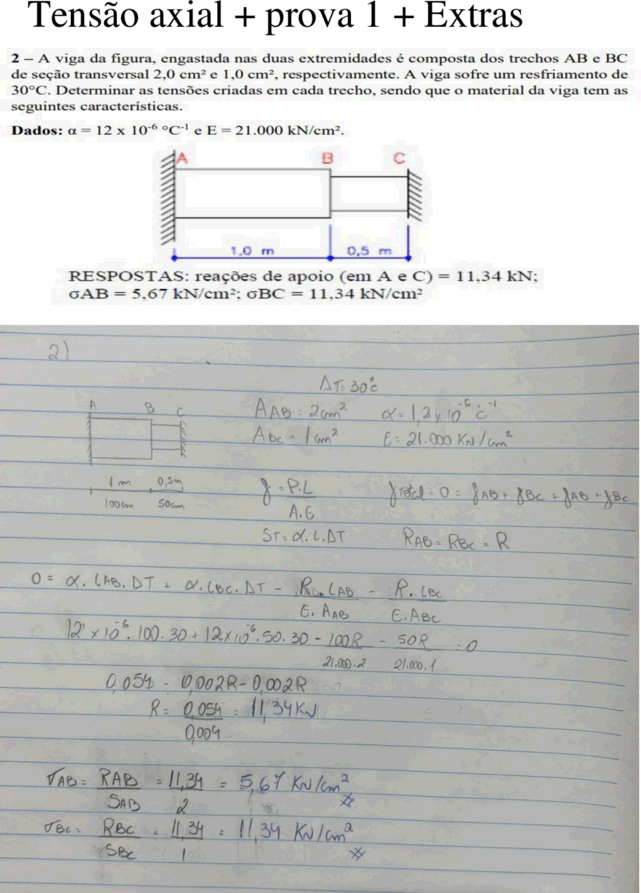 Tensão axial + prova 1 + Extras
2 – A viga da figura, engastada nas duas extremidades é composta dos trechos AB e BC
de seção transversal 2,0 cm² e 1,0 cm², respectivamente. A viga sofre um resfriamento de
30°C. Determinar as tensões criadas em cada trecho, sendo que o material da viga tem as
seguintes características.
Dados: α = 12 x 10⁻⁶ °C⁻¹ e E = 21.000 kN/cm².
A B C
1,0 m 0,5 m
RESPOSTAS: reações de apoio (em A e C) = 11,34 kN;
σAB = 5,67 kN/cm²; σBC = 11,34 kN/cm²
2)
ΔT = 30°C
A B C
AAB = 2cm² α = 1,2 x 10⁻⁶ °C⁻¹
Abc = 1cm² E = 21.000 KN/cm²
1m 0,5m
100cm 50cm
δ = P.L
A.E
δTotal = 0 = δAB + δBC + δAB + δBC
δT = α.L.ΔT RAB = RBC = R
0 = α.LAB.DT + α.LBC.ΔT - R.LAB - R.LBC
E.AAB E.ABC
12 x 10⁻⁶.100.30 + 12 x 10⁻⁶.50.30 - 100R - 50R = 0
21.000.2 21.000.1
0,054 - 0,002R - 0,002R
R = 0,054 = 11,34KN
0,004
σAB = RAB = 11,34 = 5,67 KN/cm²
SAB 2
σBC = RBC = 11,34 = 11,34 KN/cm²
SBC 1